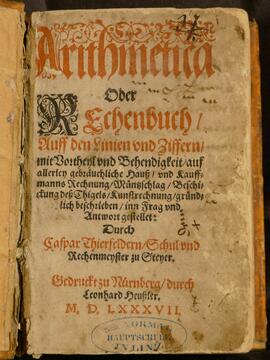 Arithmetica
Oder
REchenbuch/
Auff den Linien vnd Ziffern/
mit Vortheyl vnd Behendigkeit/ auf
allerley gebräuchliche Hauß/ vnd Kauff-
manns Rechnung/ Müntzschlag/ Beschi-
ckung deß Thigels/ Kunstrechnung/ gründ-
lich beschrieben/ inn Frag vnd
Antwort gestellet:
Durch
Caspar Thierfeldern/ Schul vnd
Rechenmeyster zu Steyer.
Gedruckt zu Nürnberg/ durch
Leonhard Heußler.
M. D. LXXXVII.
NORMAL
HAUPTSCHULE
IN LINZ